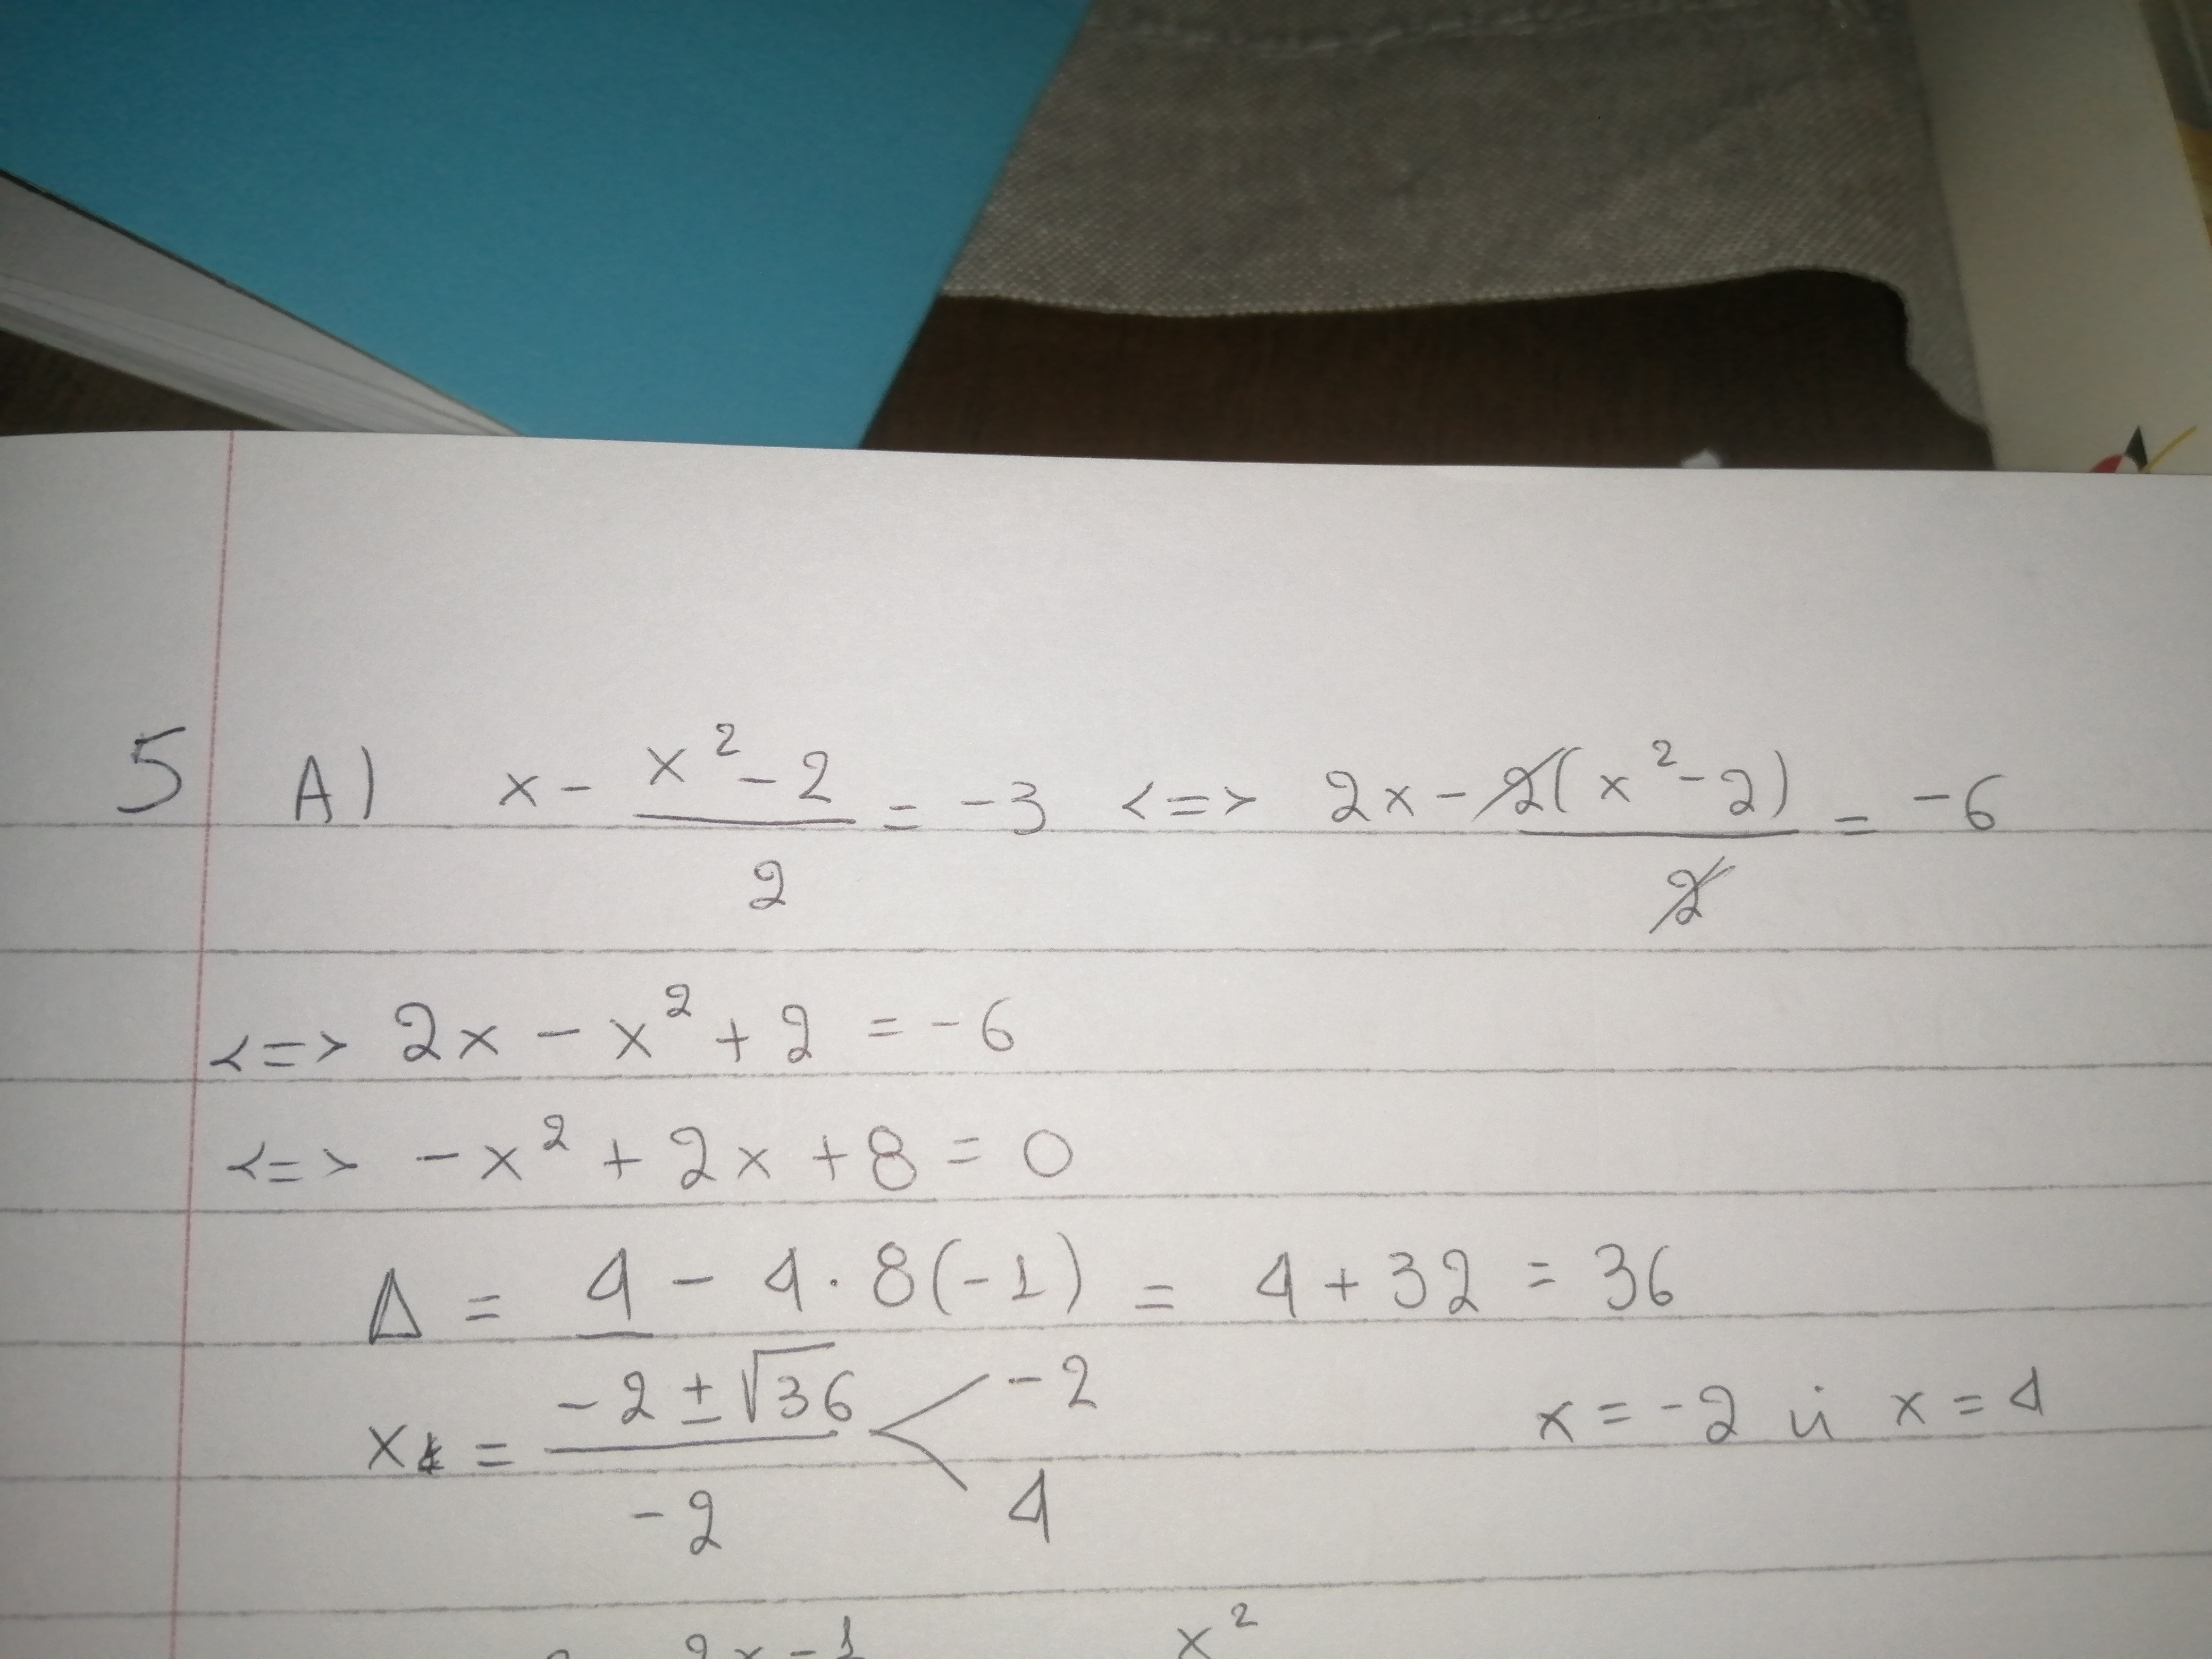 5 A) x - (x² - 2)/2 = -3 <=> 2x - 2(x² - 2)/2 = -6
<=> 2x - x² + 2 = -6
<=> -x² + 2x + 8 = 0
Δ = 4 - 4 · 8(-1) = 4 + 32 = 36
x = (-2 ± √36)/-2 < -2 4 x = -2 ή x = 4
2x - 1 x²